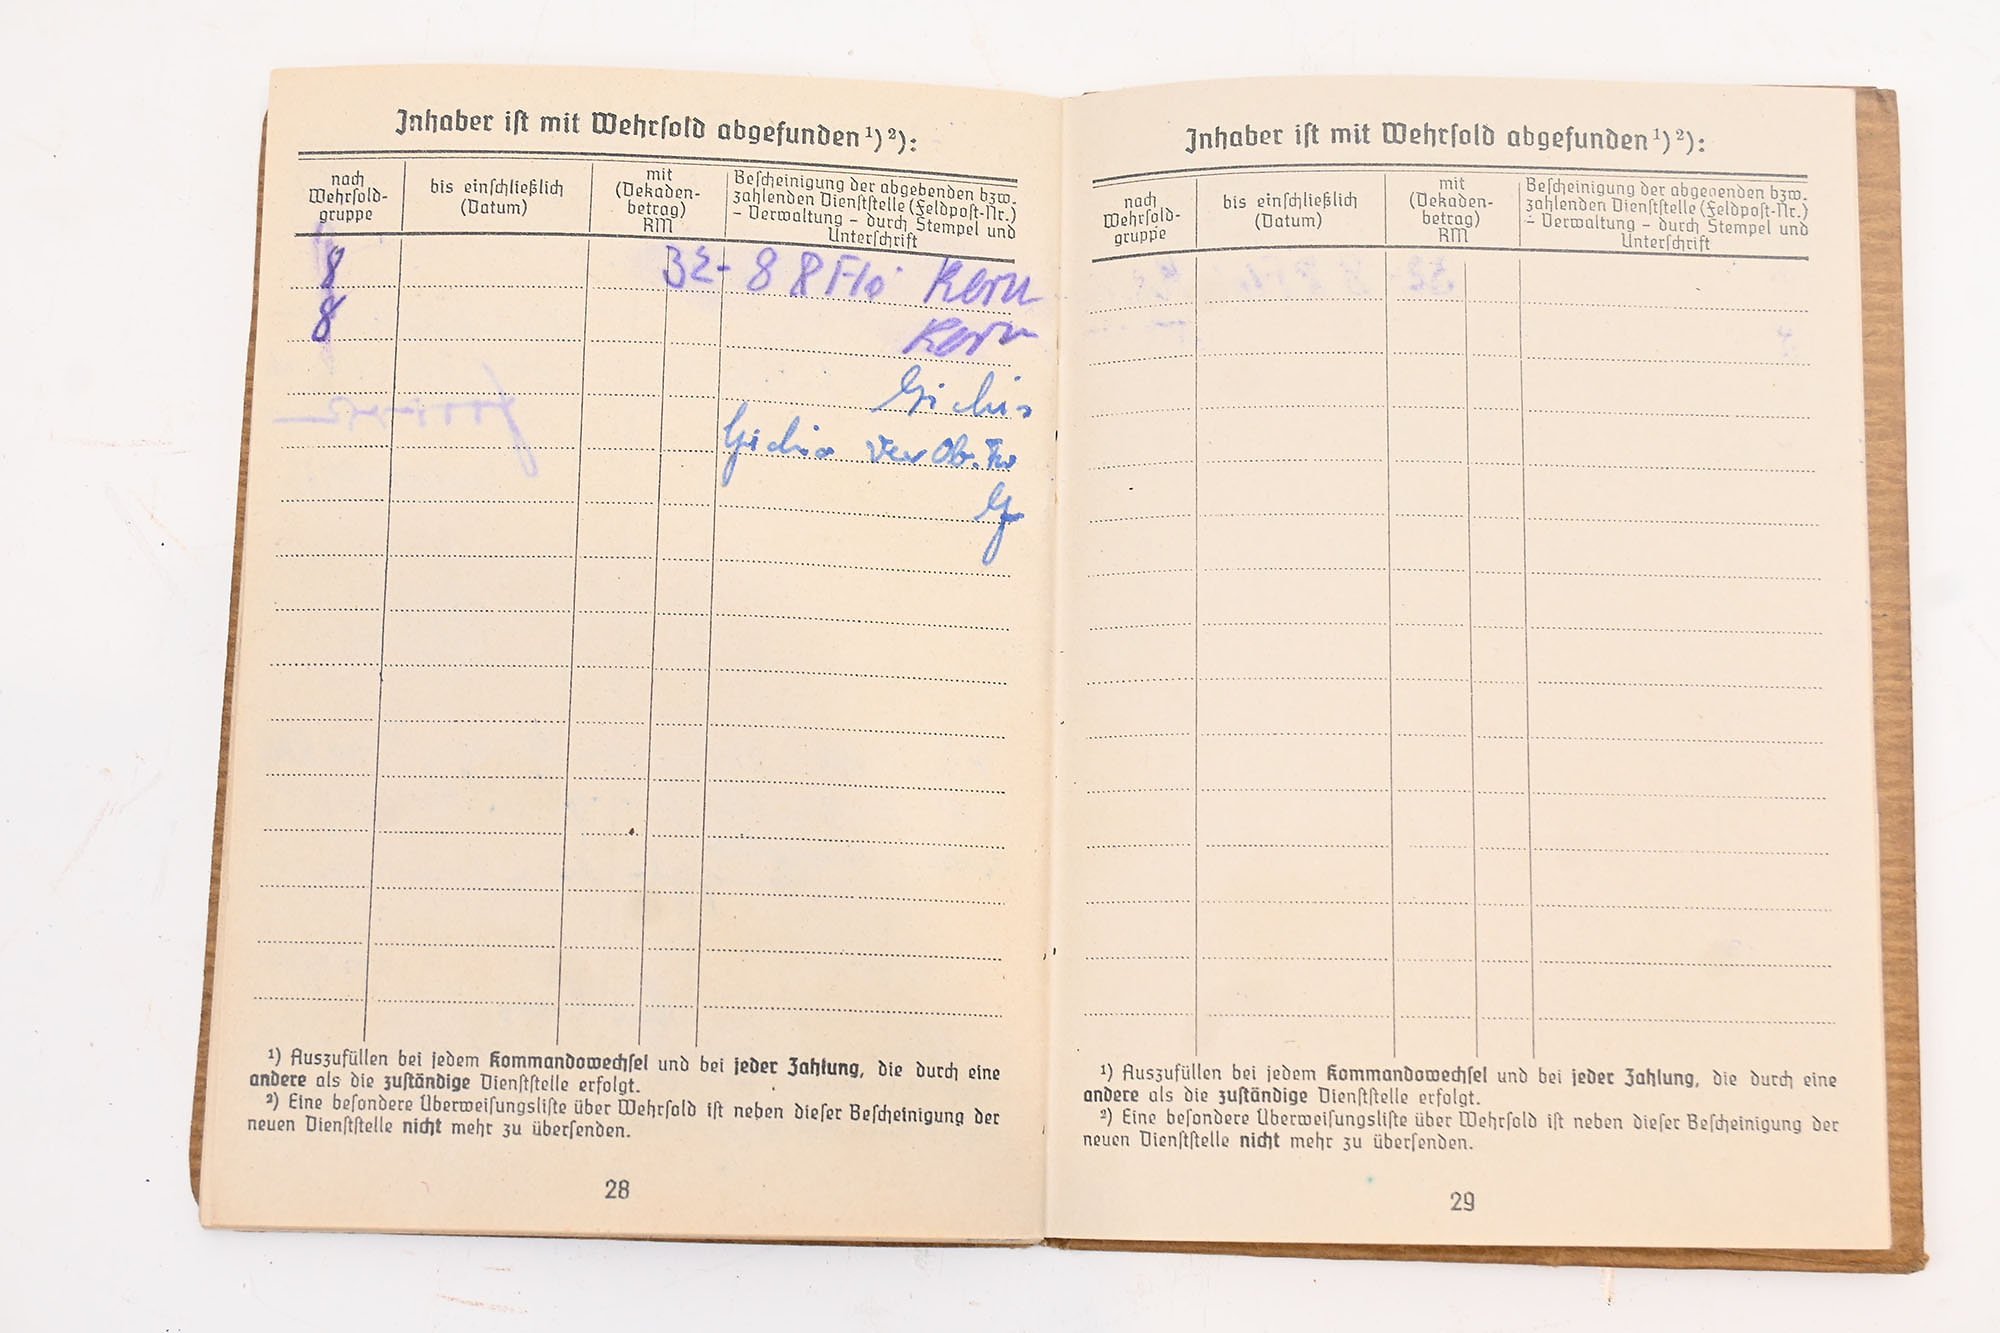 Inhaber ist mit Wehrsold abgefunden ¹) ²):
nach
Wehrsold-
gruppe
bis einschließlich
(Datum)
mit
(Dekaden-
betrag)
RM
Bescheinigung der abgebenden bzw.
zahlenden Dienststelle (Feldpost-Nr.)
- Verwaltung - durch Stempel und
Unterschrift
8 32- 8 Kern
8 Kern
¹) Auszufüllen bei jedem Kommandowechsel und bei jeder Zahlung, die durch eine
andere als die zuständige Dienststelle erfolgt.
²) Eine besondere Überweisungsliste über Wehrsold ist neben dieser Bescheinigung der
neuen Dienststelle nicht mehr zu übersenden.
28
Inhaber ist mit Wehrsold abgefunden ¹) ²):
nach
Wehrsold-
gruppe
bis einschließlich
(Datum)
mit
(Dekaden-
betrag)
RM
Bescheinigung der abgebenden bzw.
zahlenden Dienststelle (Feldpost-Nr.)
- Verwaltung - durch Stempel und
Unterschrift
¹) Auszufüllen bei jedem Kommandowechsel und bei jeder Zahlung, die durch eine
andere als die zuständige Dienststelle erfolgt.
²) Eine besondere Überweisungsliste über Wehrsold ist neben dieser Bescheinigung der
neuen Dienststelle nicht mehr zu übersenden.
29